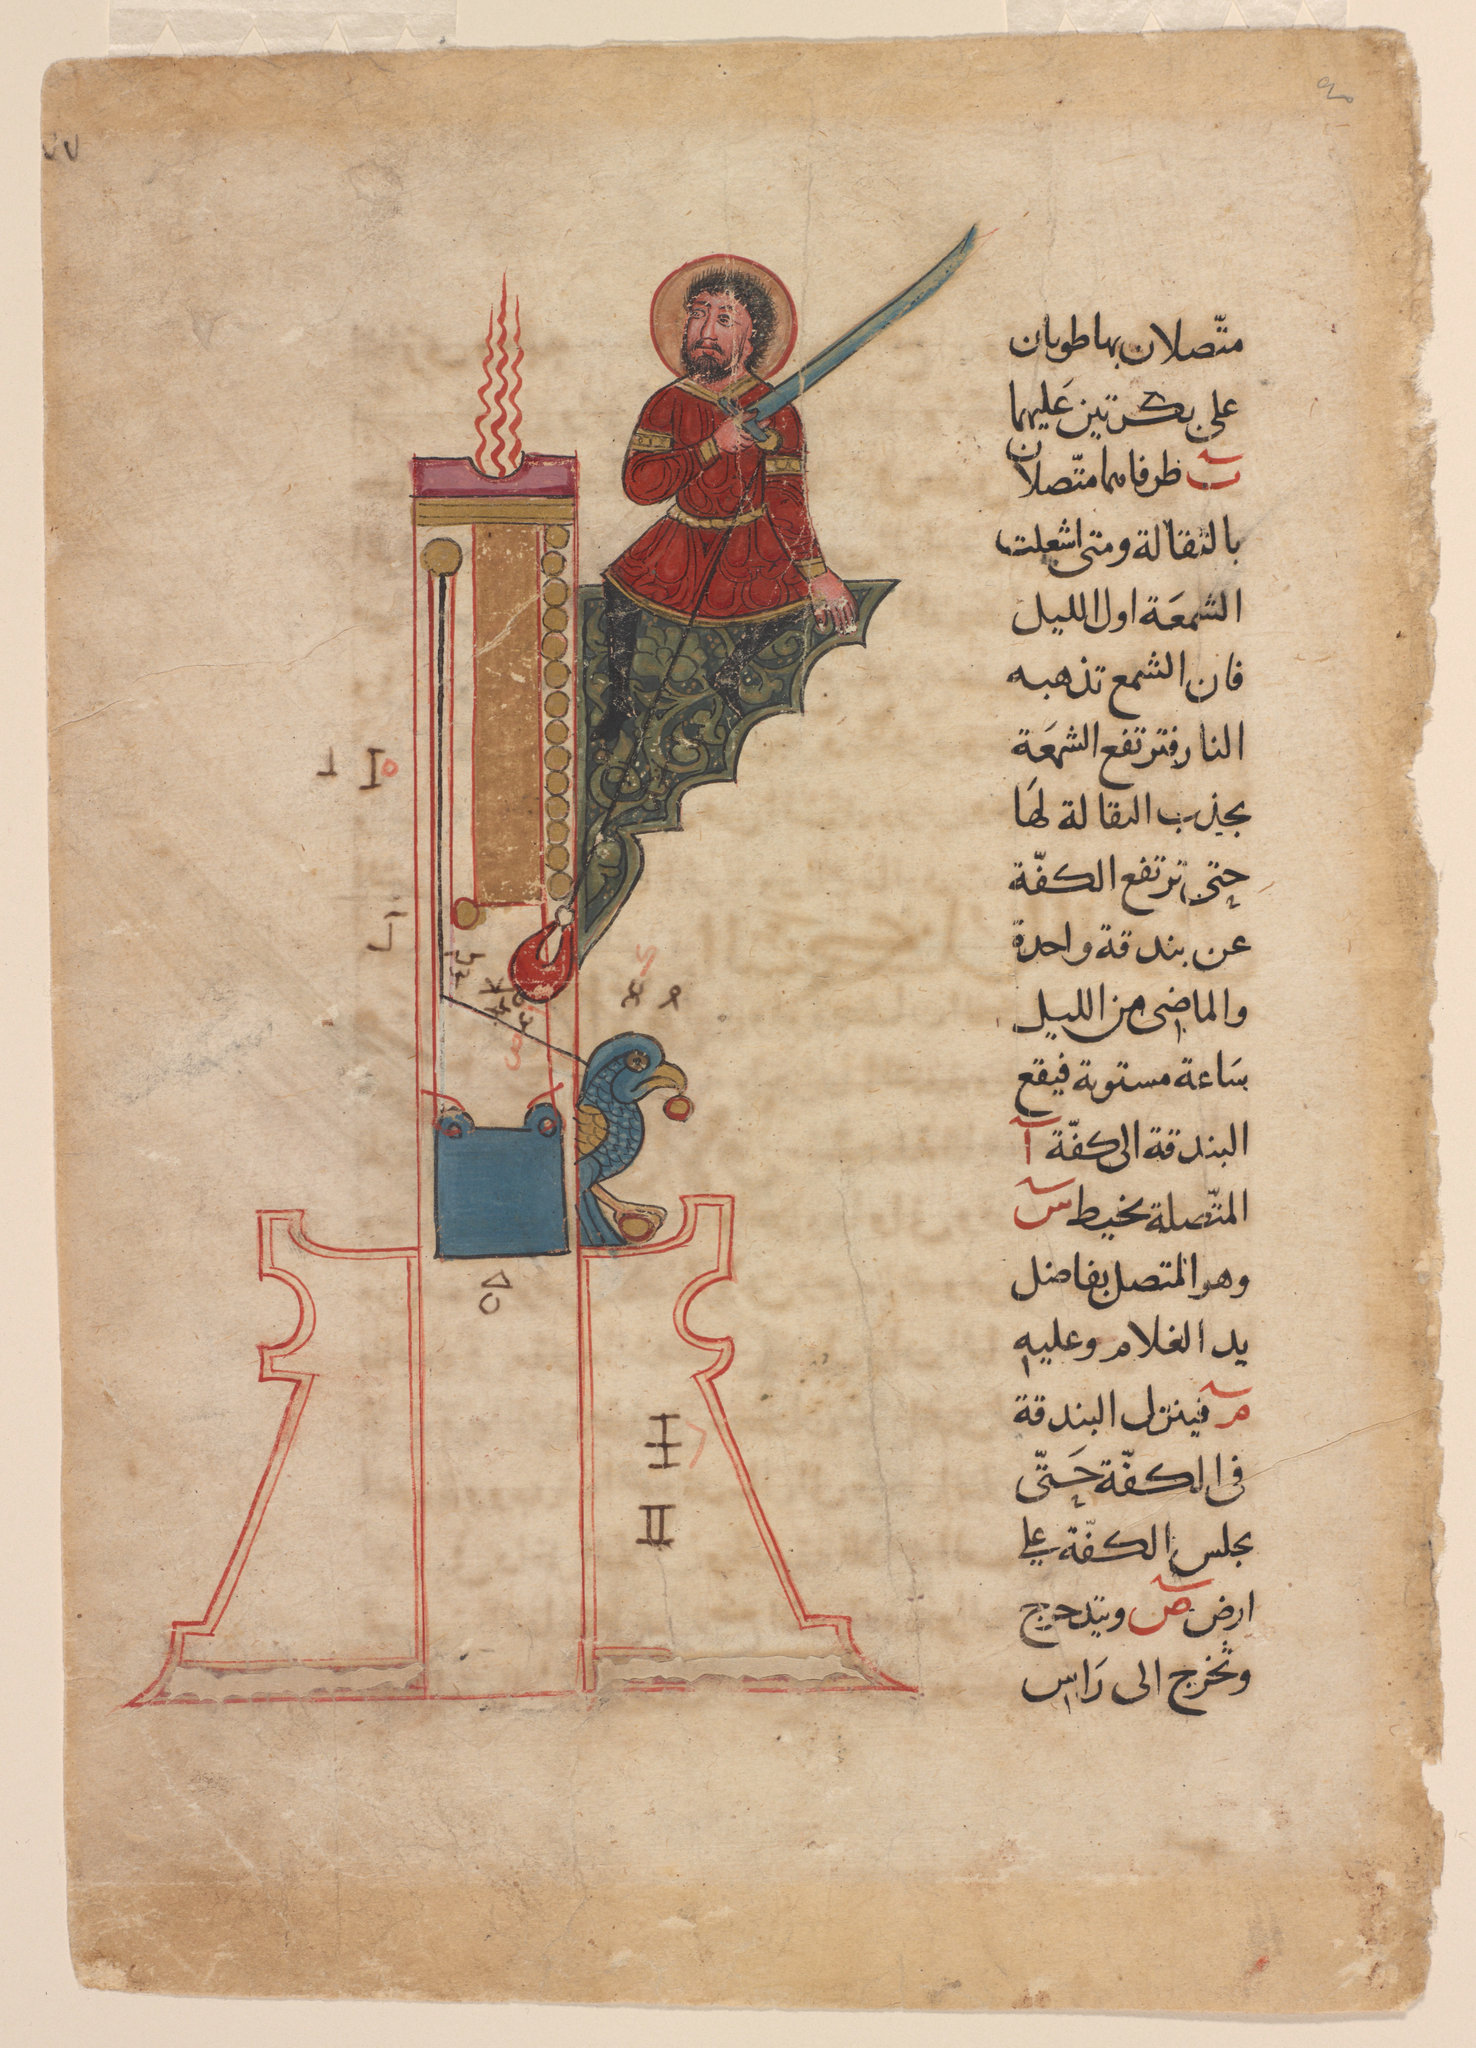 متّصلان بها طويان
على بكرتين عَليهما
بَ ظرفاهما متّصلان
بالثقالة ومتى اشعلت
الشمعَة اول الليل
فان الشمع تذهبه
النار فترتفع الشمعَة
بجذب الثقالة لهَا
حتى ترتفع الكفّة
عن بندقة واحدة
والماضى من الليل
سَاعة مستوية فيقع
البندقة الى كفّة آ
المتّصلة بخيط س
وهو المتصل بفاضل
يد الغلام وعليه
م فينزل البندقة
فى الكفّة حَتّى
يجلس الكفّة على
ارض ص ويتدحرج
وتخرج الى رَاس
٧٧